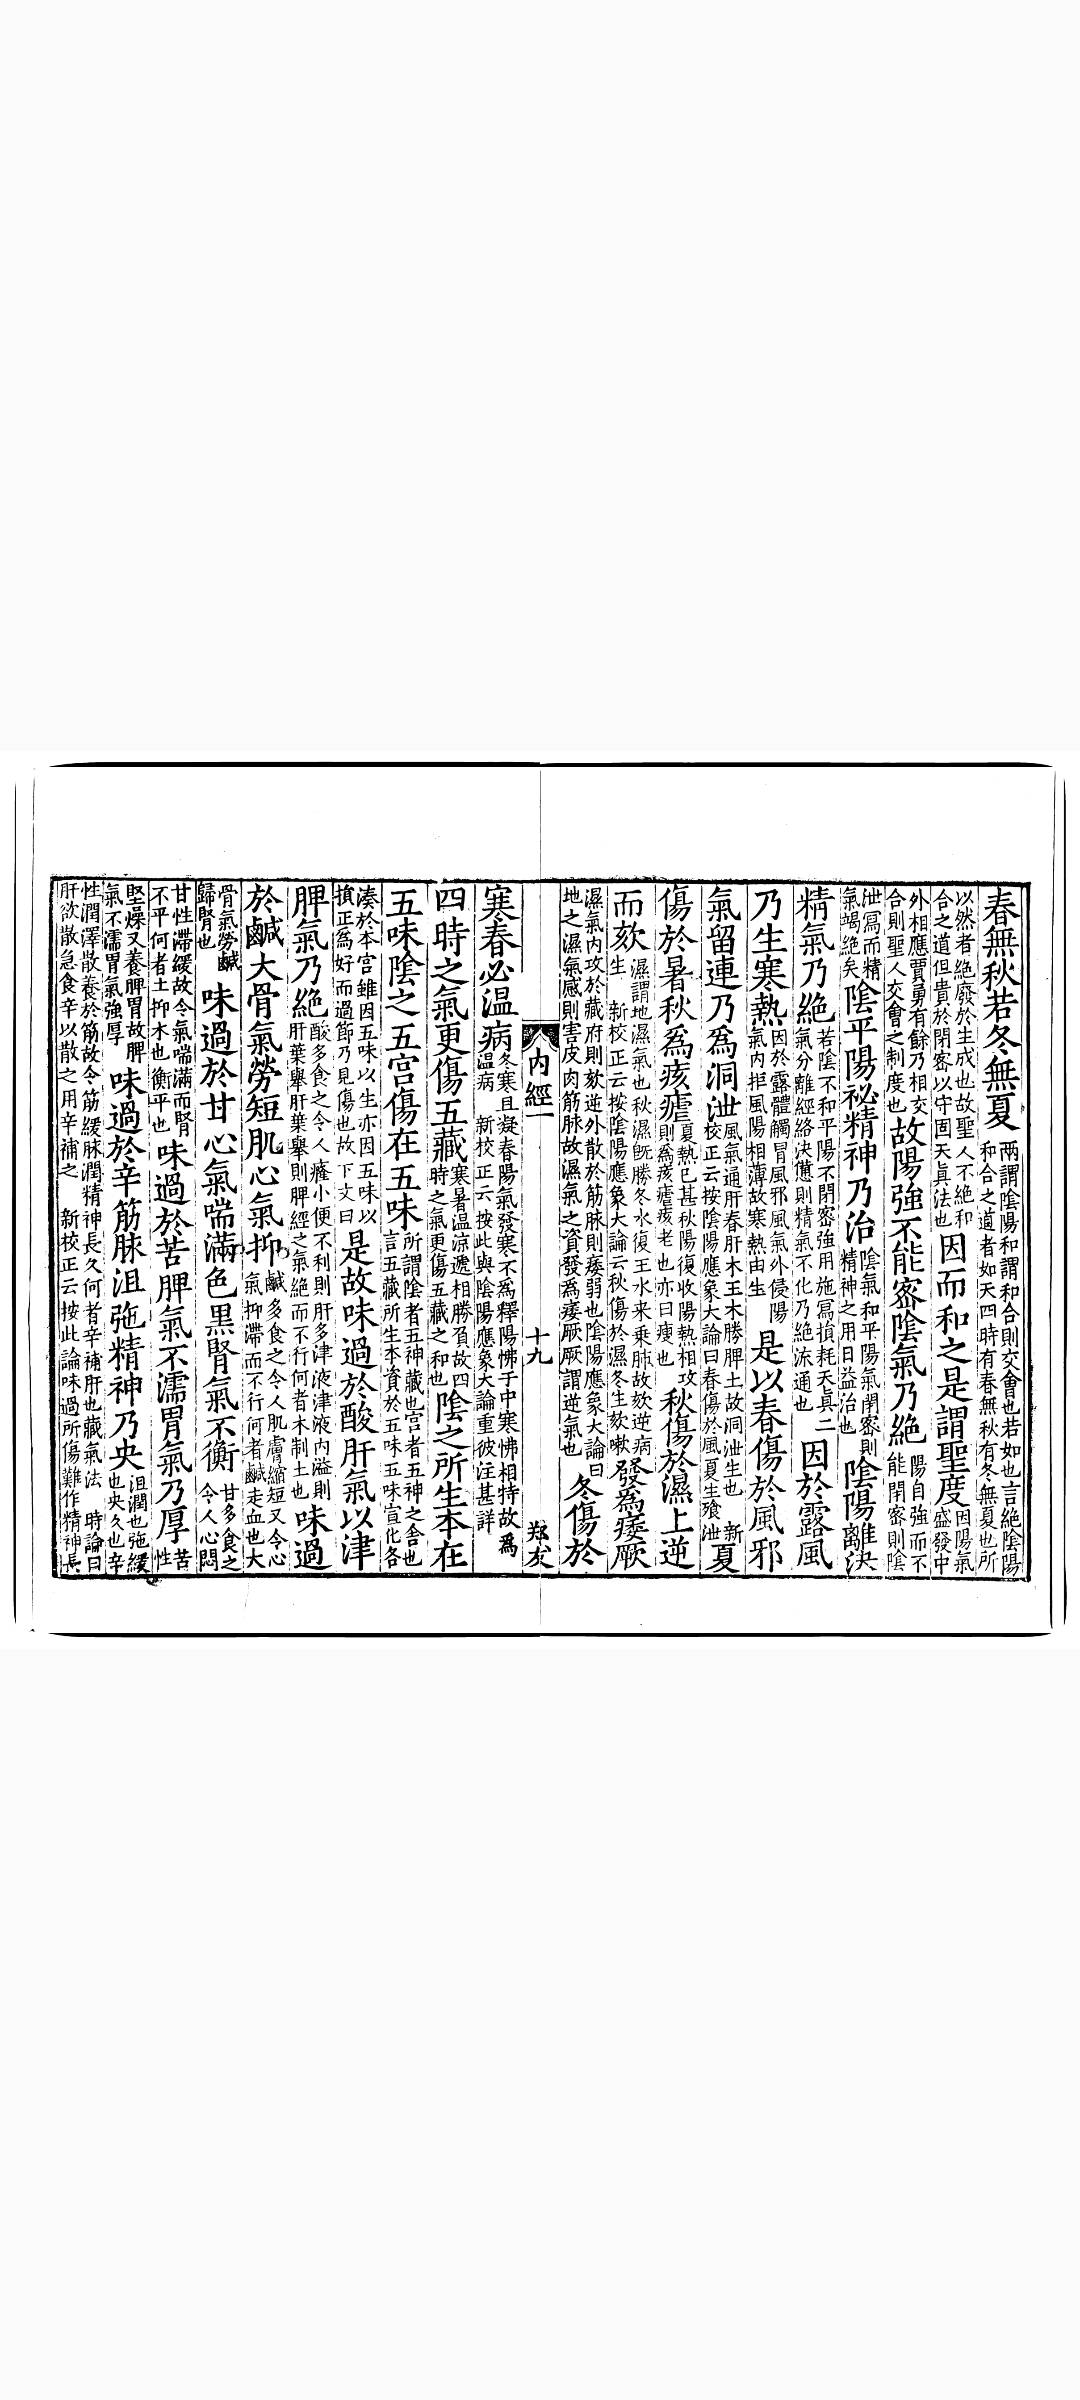 春無秋若冬無夏兩謂陰陽和謂和合則交會也若如也言絶陰陽和合之道者如天四時有春無秋有冬無夏也所
以然者絶廢於生成也故聖人不絶和合之道但貴於閉密以守固天眞法也因而和之是謂聖度因陽氣盛發中
外相應賈勇有餘乃相交合則聖人交會之制度也故陽強不能密陰氣乃絶陽自強而不能閉密則陰
泄寫而精氣竭絶矣陰平陽祕精神乃治陰氣和平陽氣閉密則精神之用日益治也陰陽離決
精氣乃絶若陰不和平陽不閉密強用施寫損耗天眞二氣分離經絡決憊則精氣不化乃絶流通也因於露風
乃生寒熱因於露體觸冒風邪風氣外侵陽氣內拒風陽相薄故寒熱由生是以春傷於風邪
氣留連乃爲洞泄風氣通肝春肝木王木勝脾土故洞泄生也 新校正云按陰陽應象大論曰春傷於風夏生飱泄夏
傷於暑秋爲痎瘧夏熱已甚秋陽復收陽熱相攻則爲痎瘧痎老也亦曰瘦也秋傷於濕上逆
而欬濕謂地濕氣也秋濕旣勝冬水復王水来乘肺故欬逆病生 新校正云按陰陽應象大論云秋傷於濕冬生欬嗽發爲痿厥
濕氣內攻於藏府則欬逆外散於筋脉則痿弱也陰陽應象大論曰地之濕氣感則害皮肉筋脉故濕氣之資發爲痿厥厥謂逆氣也冬傷於
內經一 十九 郑友
寒春必温病冬寒且凝春陽氣發寒不爲釋陽怫于中寒怫相持故爲温病 新校正云按此與陰陽應象大論重彼注甚詳
四時之氣更傷五藏寒暑温涼遞相勝負故四時之氣更傷五藏之和也陰之所生本在
五味陰之五宫傷在五味所謂陰者五神藏也宫者五神之舍也言五藏所生本資於五味五味宣化各
湊於本宫雖因五味以生亦因五味以損正爲好而過節乃見傷也故下文曰是故味過於酸肝氣以津
脾氣乃絶酸多食之令人癃小便不利則肝多津液津液內溢則肝葉舉肝葉舉則脾經之氣絶而不行何者木制土也味過
於鹹大骨氣勞短肌心氣抑鹹多食之令人肌膚縮短又令心氣抑滯而不行何者鹹走血也大
骨氣勞鹹歸腎也味過於甘心氣喘滿色黑腎氣不衡甘多食之令人心悶
甘性滯緩故令氣喘滿而腎不平何者土抑木也衡平也味過於苦脾氣不濡胃氣乃厚苦性
堅燥又養脾胃故脾氣不濡胃氣強厚味過於辛筋脉沮弛精神乃央沮潤也弛緩也央久也辛
性潤澤散養於筋故令筋緩脉潤精神長久何者辛補肝也藏氣法 時論曰肝欲散急食辛以散之用辛補之 新校正云按此論味過所傷難作精神長